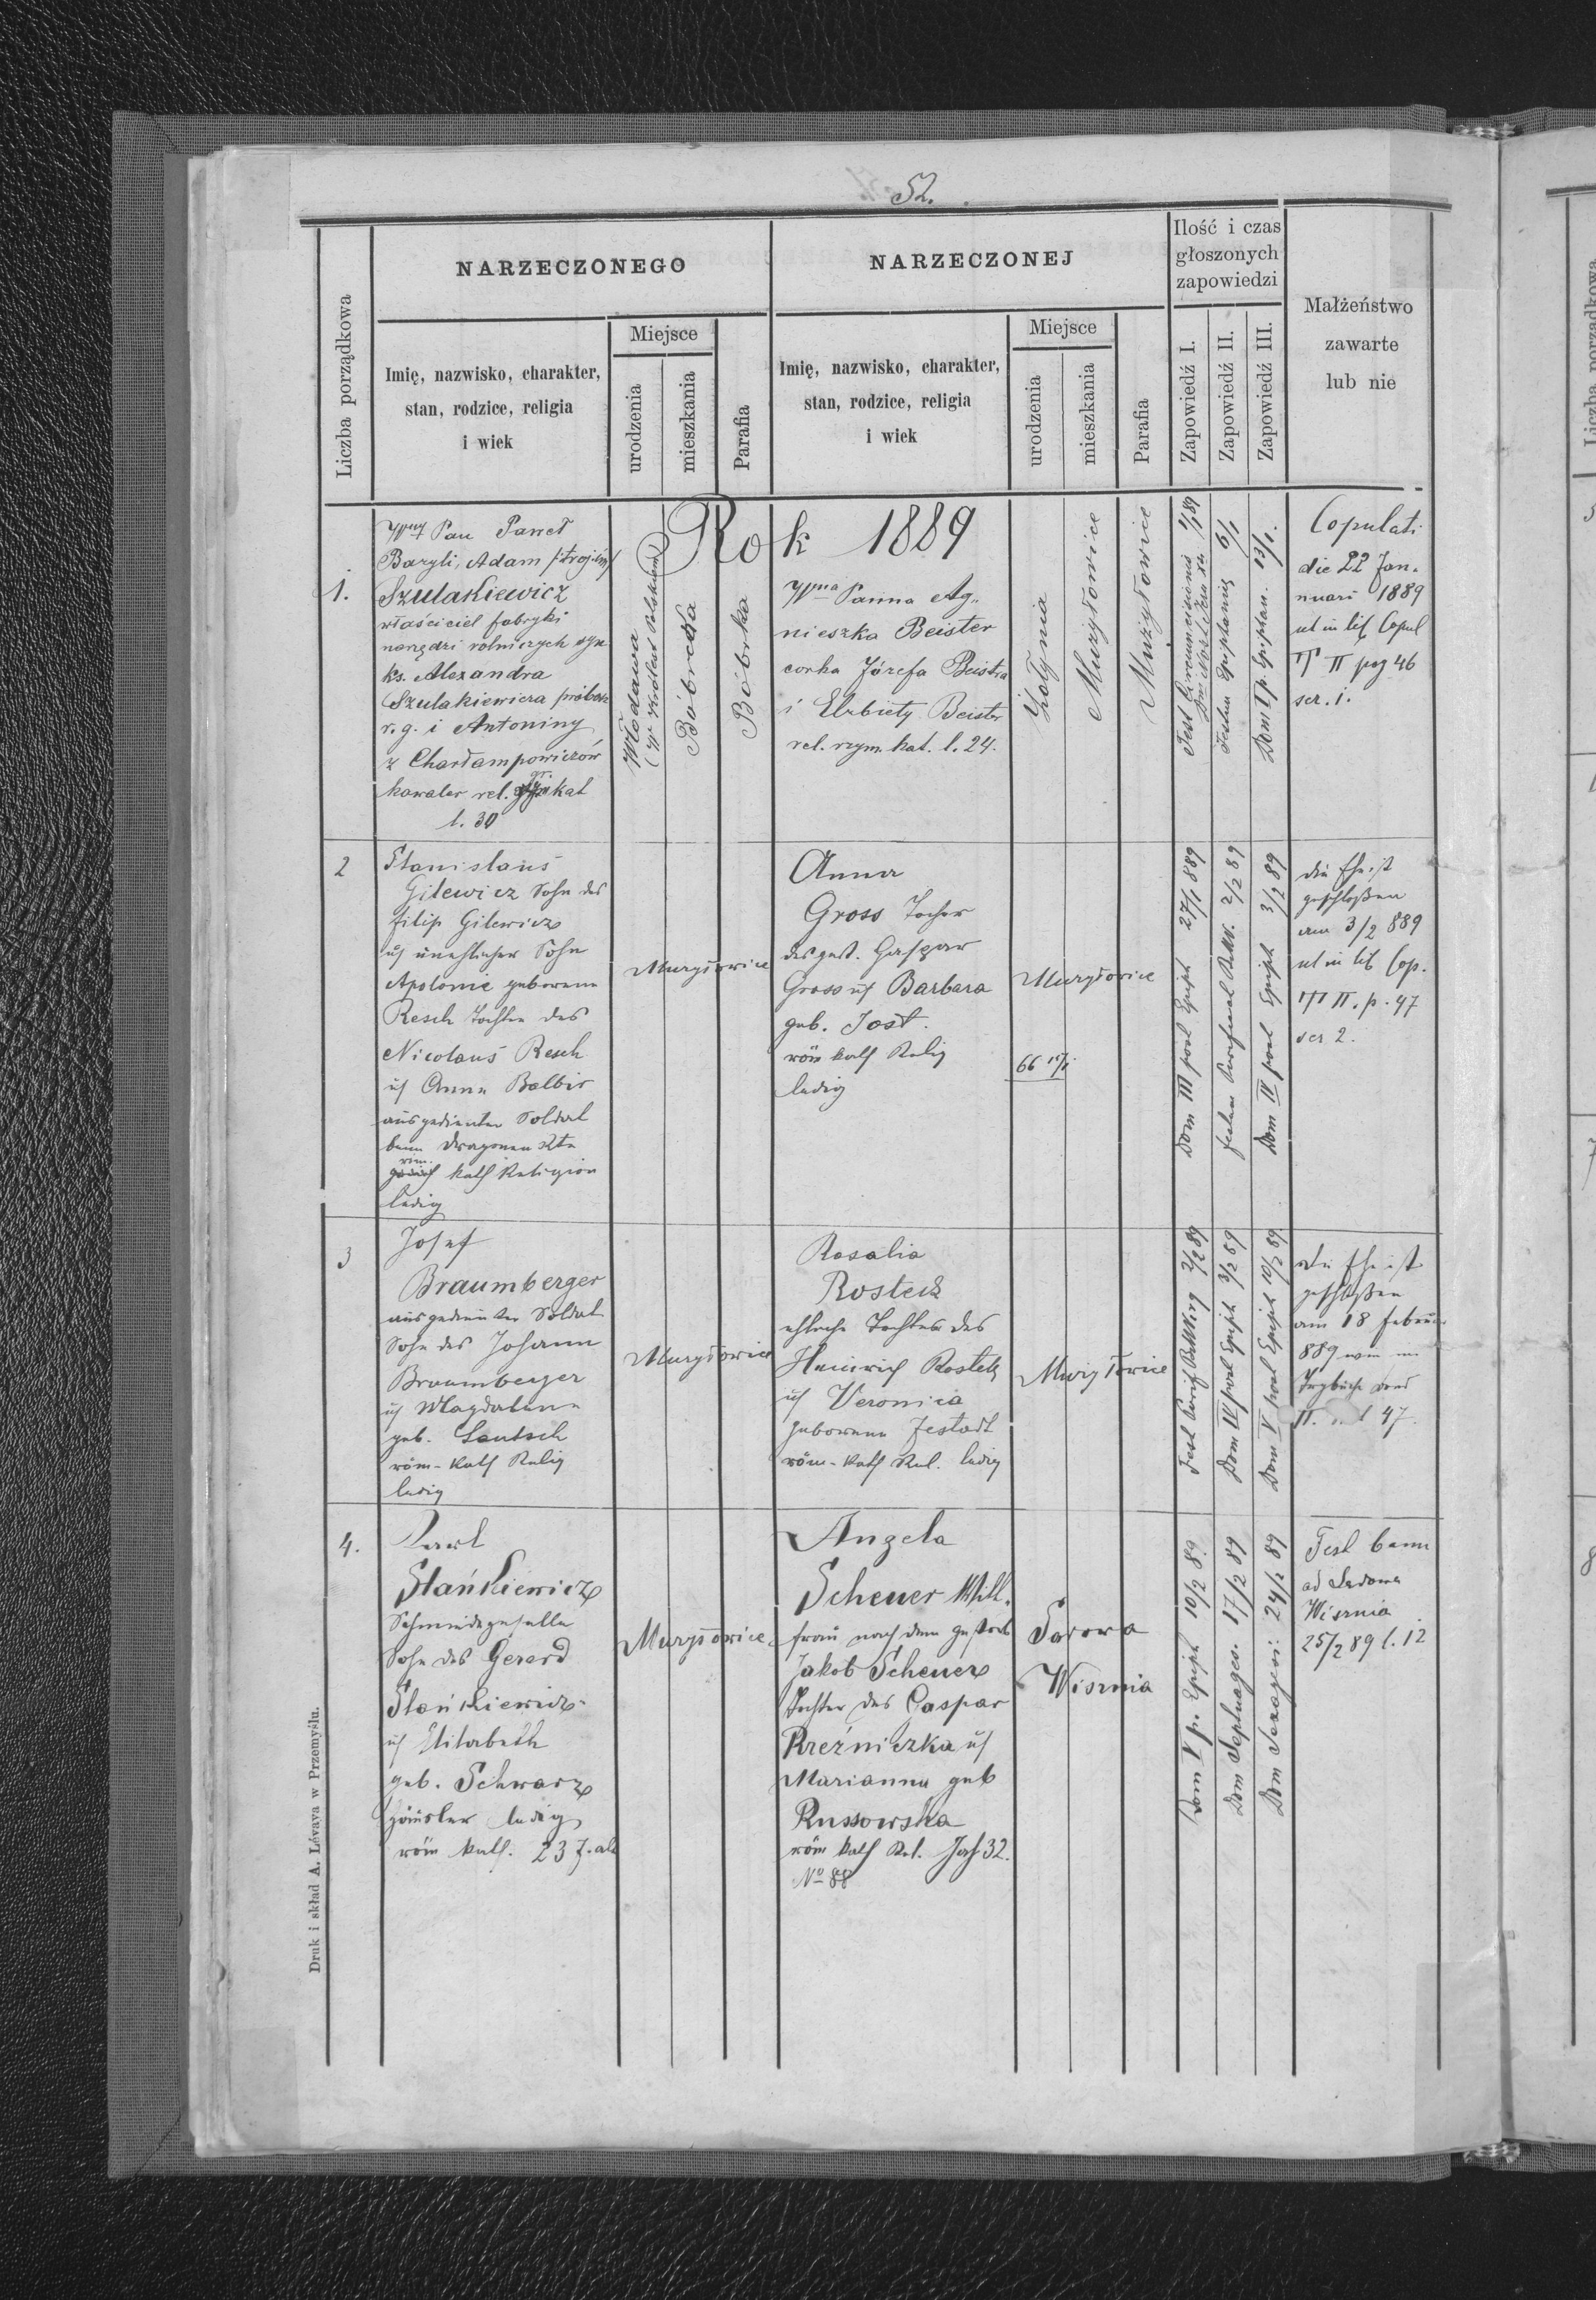 52.
Liczba porządkowa
NARZECZONEGO
NARZECZONEJ
Ilość i czas
głoszonych
zapowiedzi
Małżeństwo
zawarte
lub nie
Imię, nazwisko, charakter,
stan, rodzice, religia
i wiek
Miejsce
urodzenia
mieszkania
Parafia
Imię, nazwisko, charakter,
stan, rodzice, religia
i wiek
Miejsce
urodzenia
mieszkania
Parafia
Zapowiedź I.
Zapowiedź II.
Zapowiedź III.
Rok 1889
1.
Wny Pan Paweł
Bazyli, Adam
Szulakiewicz
właściciel fabryki
narzędzi rolniczych syn
ks. Alexandra
Szulakiewicza
r. g. i Antoniny
z Charłampowiczów
kawaler rel. gr. kat
l. 30
Włodawa
(W Królest Polskiem)
Bóbrecka
Bóbrka
Wna Panna Ag„
nieszka Beister
corka Józefa Beistra
i Elzbiety Beister
rel. rzym. kat. l. 24.
Gołynia
Mużyłowice
Mużyłowice
Fest Circumcisionis 1/1 89
Festum Epiphaniae 6/1
Dom I p. Epiphan. 13/1.
Copulati
die 22 Jan.
nuari 1889
ut in lib Copul
T II pag 46
ser. 1.
2
Stanislaus
Gilewicz Sohn des
Filip Gilewicz
u unehlicher Sohn
Apolonie geborene
Resch Tochter des
Nicolaus Resch
u Anna Balbir
ausgedienter Soldat
beim Dragoner Rte
röm. kath Religion
ledig
Mużyłowice
Anna
Gross Tochter
des gest. Gaspar
Gross u Barbara
geb. Jost.
röm kath Relig
ledig
Mużyłowice
66
Dom III post Epiph 27/1 889
Festum Purificat BMV. 2/2 89
Dom IV post Epiph 3/2 89
die Ehe ist
geschloßen
am 3/2 889
ut in lib Cop.
T II. p. 47
ser 2.
3
Josef
Braumberger
ausgedienter Soldat
Sohn des Johann
Braumberger
u Magdalena
geb. Lautsch
röm-kath Relig
ledig
Mużyłowice
Rosalia
Rosteck
ehliche Tochter des
Heinrich Rosteck
u Veronica
geborene Jestadt
röm-kath Rel. ledig
Mużyłowice
Fest Purif BMVirg 2/2 89
Dom IV post Epiph 3/2 89
Dom V post Epiph 10/2 89
die Ehe ist
geschloßen
am 18 Februar
889
II. 47.
4.
Karl
Stańkiewicz
Schmiedegeselle
Sohn des Gerard
Stańkiewicz
u Elisabeth
geb. Schwarz
Häusler ledig
röm kath. 23 J. alt
Mużyłowice
Angela
Scheuer Witt.
frau nach dem gestorb
Jakob Scheuer
Tochter des Caspar
Kreżniczka u
Marianna geb
Russowska
röm kath Rel. Jah 32.
No 88
Sadowa
Wisznia
Dom V p. Epiph 10/2 89.
Dom Septuages. 17/2 89
Dom Sexagesi: 24/2 89
Test bann
ad Sadowa
Wisznia
25/2 89 l. 12
Druk i skład A. Lévaya w Przemyślu.
Liczba porządkowa